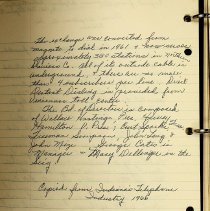 the exchange was converted from
magneto to dial in 1961 & now serves
approximately 300 stations in
Co. All of its outside cable is
underground & there are no more
than 4 subscribers per line. Direct
Distant Dialing is provided from
toll center.
The Bd. of Directors is composed
of Wallace
Hamilton V. Pres; Burt
Freeman Simpson, John
John Moje. George Cates is
Manager & Mary Dellinger is the
Secy.
Copied from Indiana Telephone
Industry 1966